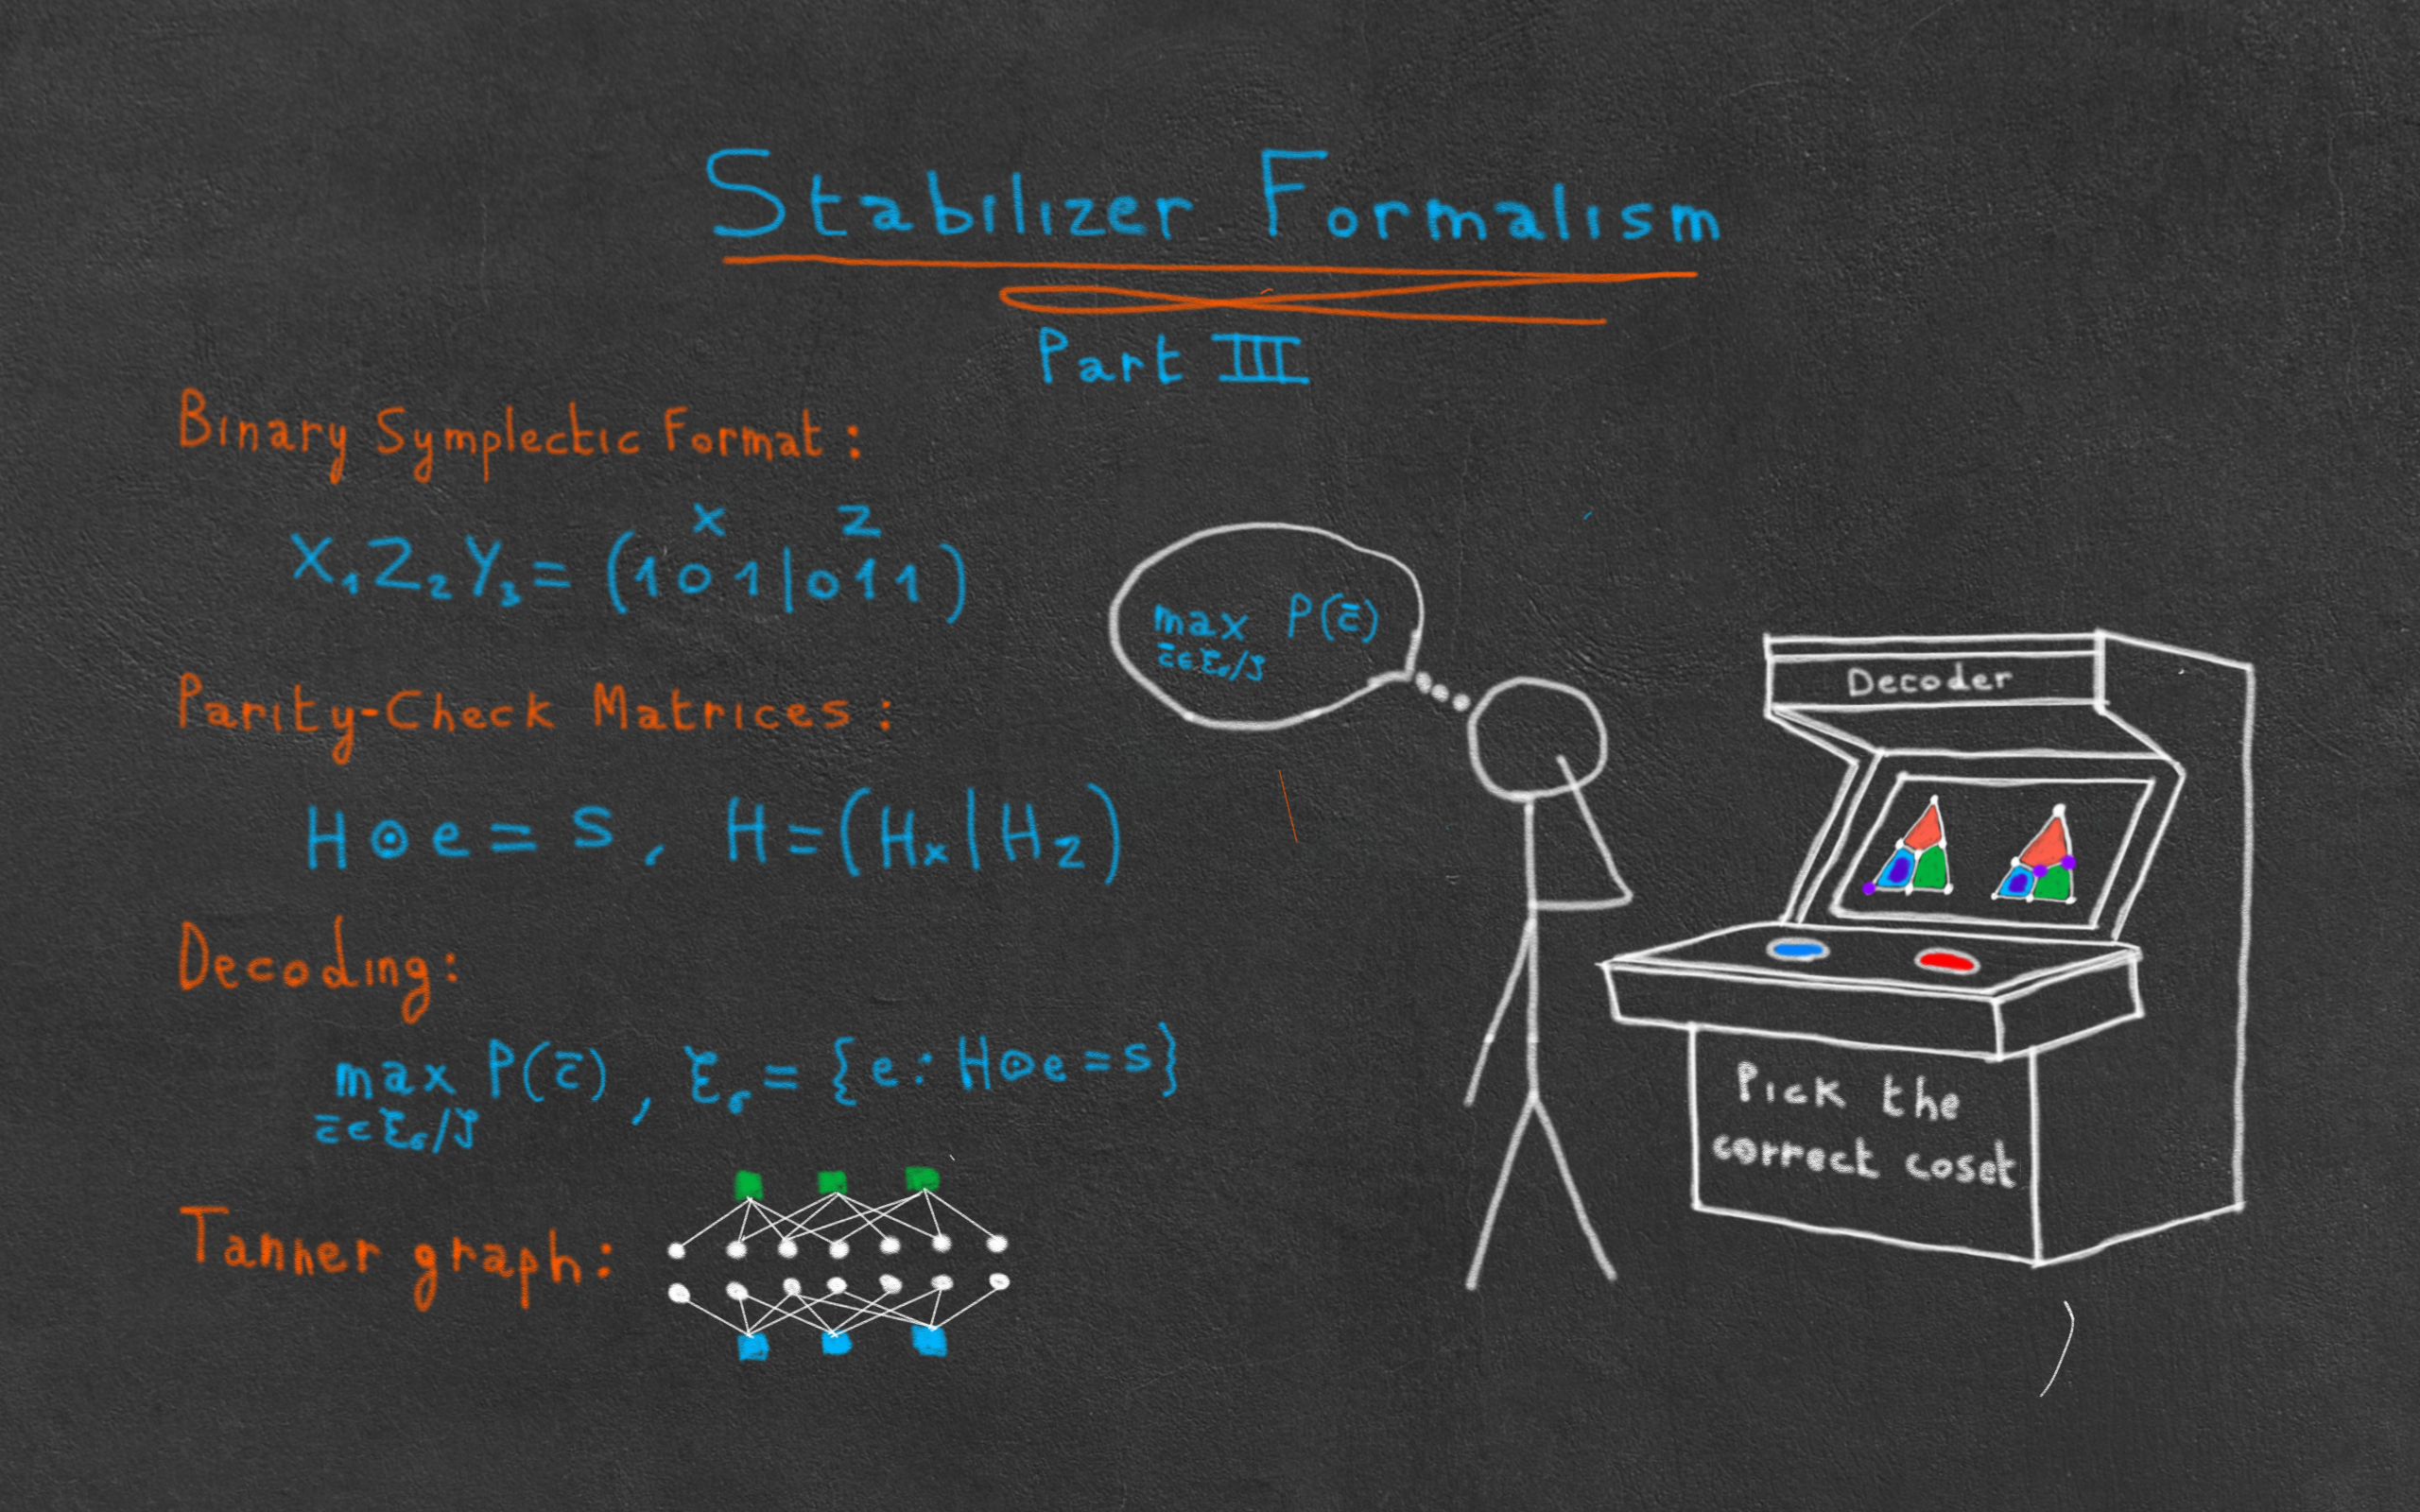 Stabilizer Formalism
Part III
Binary Symplectic Format:
X Z
X₁Z₂Y₃ = (1 0 1 | 0 1 1)
Parity-Check Matrices:
H ⊙ e = s, H = (Hₓ | H_Z)
Decoding:
max P(c̄), ℰ_σ = {e : H ⊙ e = s}
c̄ ∈ ℰ_σ/𝒮
Tanner graph:
max P(c̄)
c̄ ∈ ℰ_σ/𝒮
Decoder
Pick the
correct coset